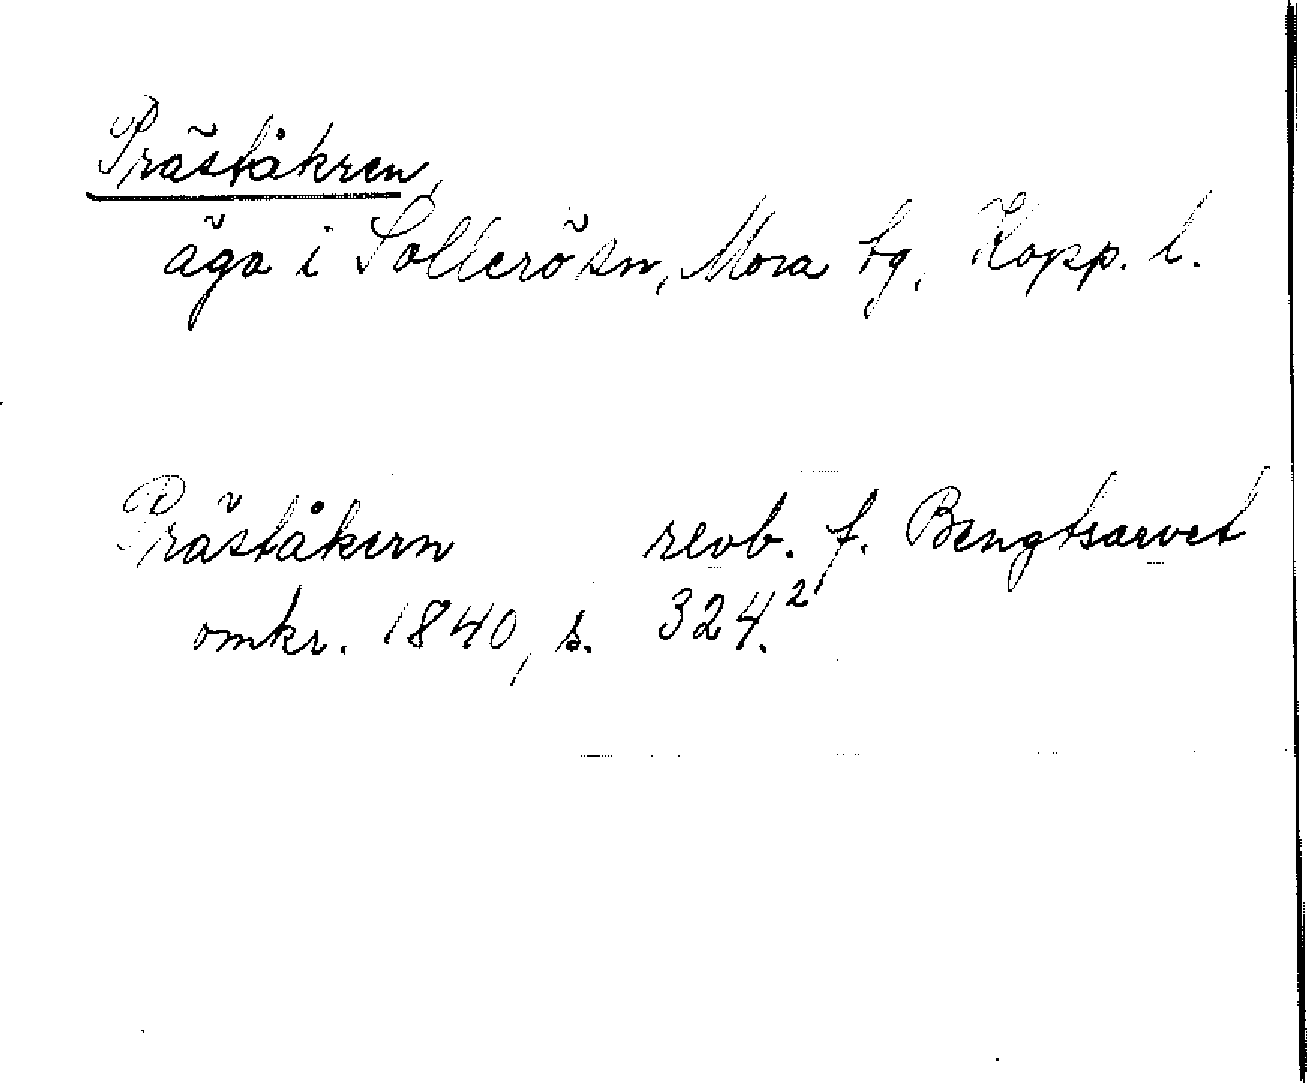 Präståkren,
äga i Sollerö sn, Mora tg, Kopp. l.
Präståkern revb. f. Bengtsarvet
omkr. 1840, s. 324.²